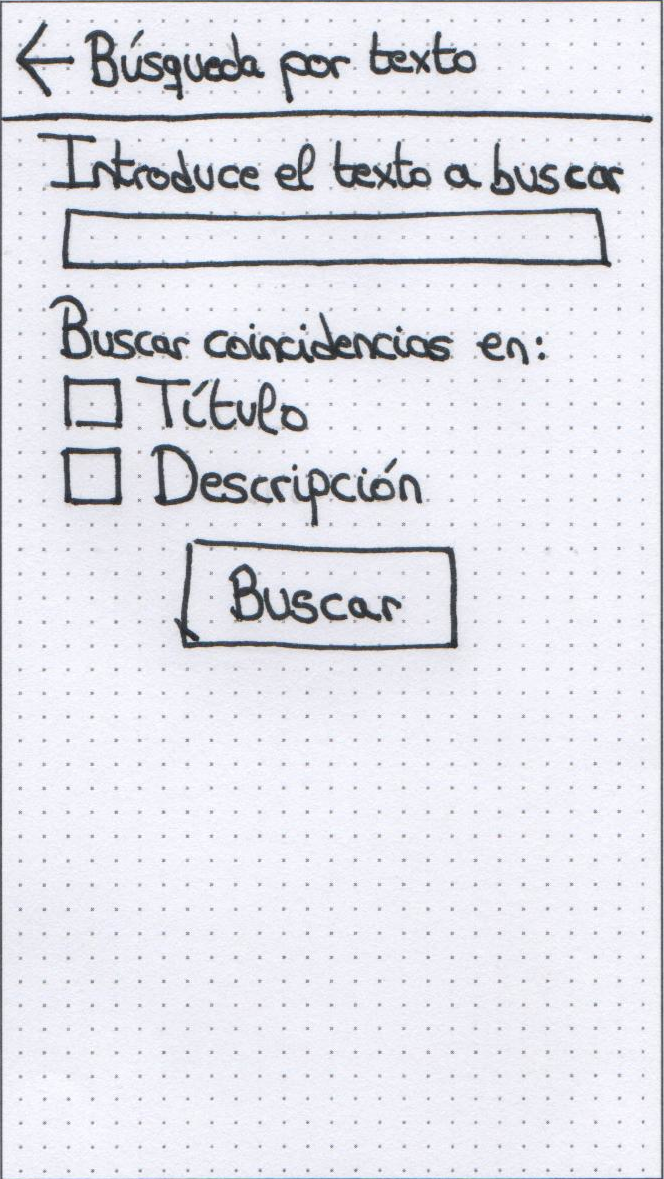 Búsqueda por texto
Introduce el texto a buscar
Buscar coincidencias en:
Título
Descripción
Buscar